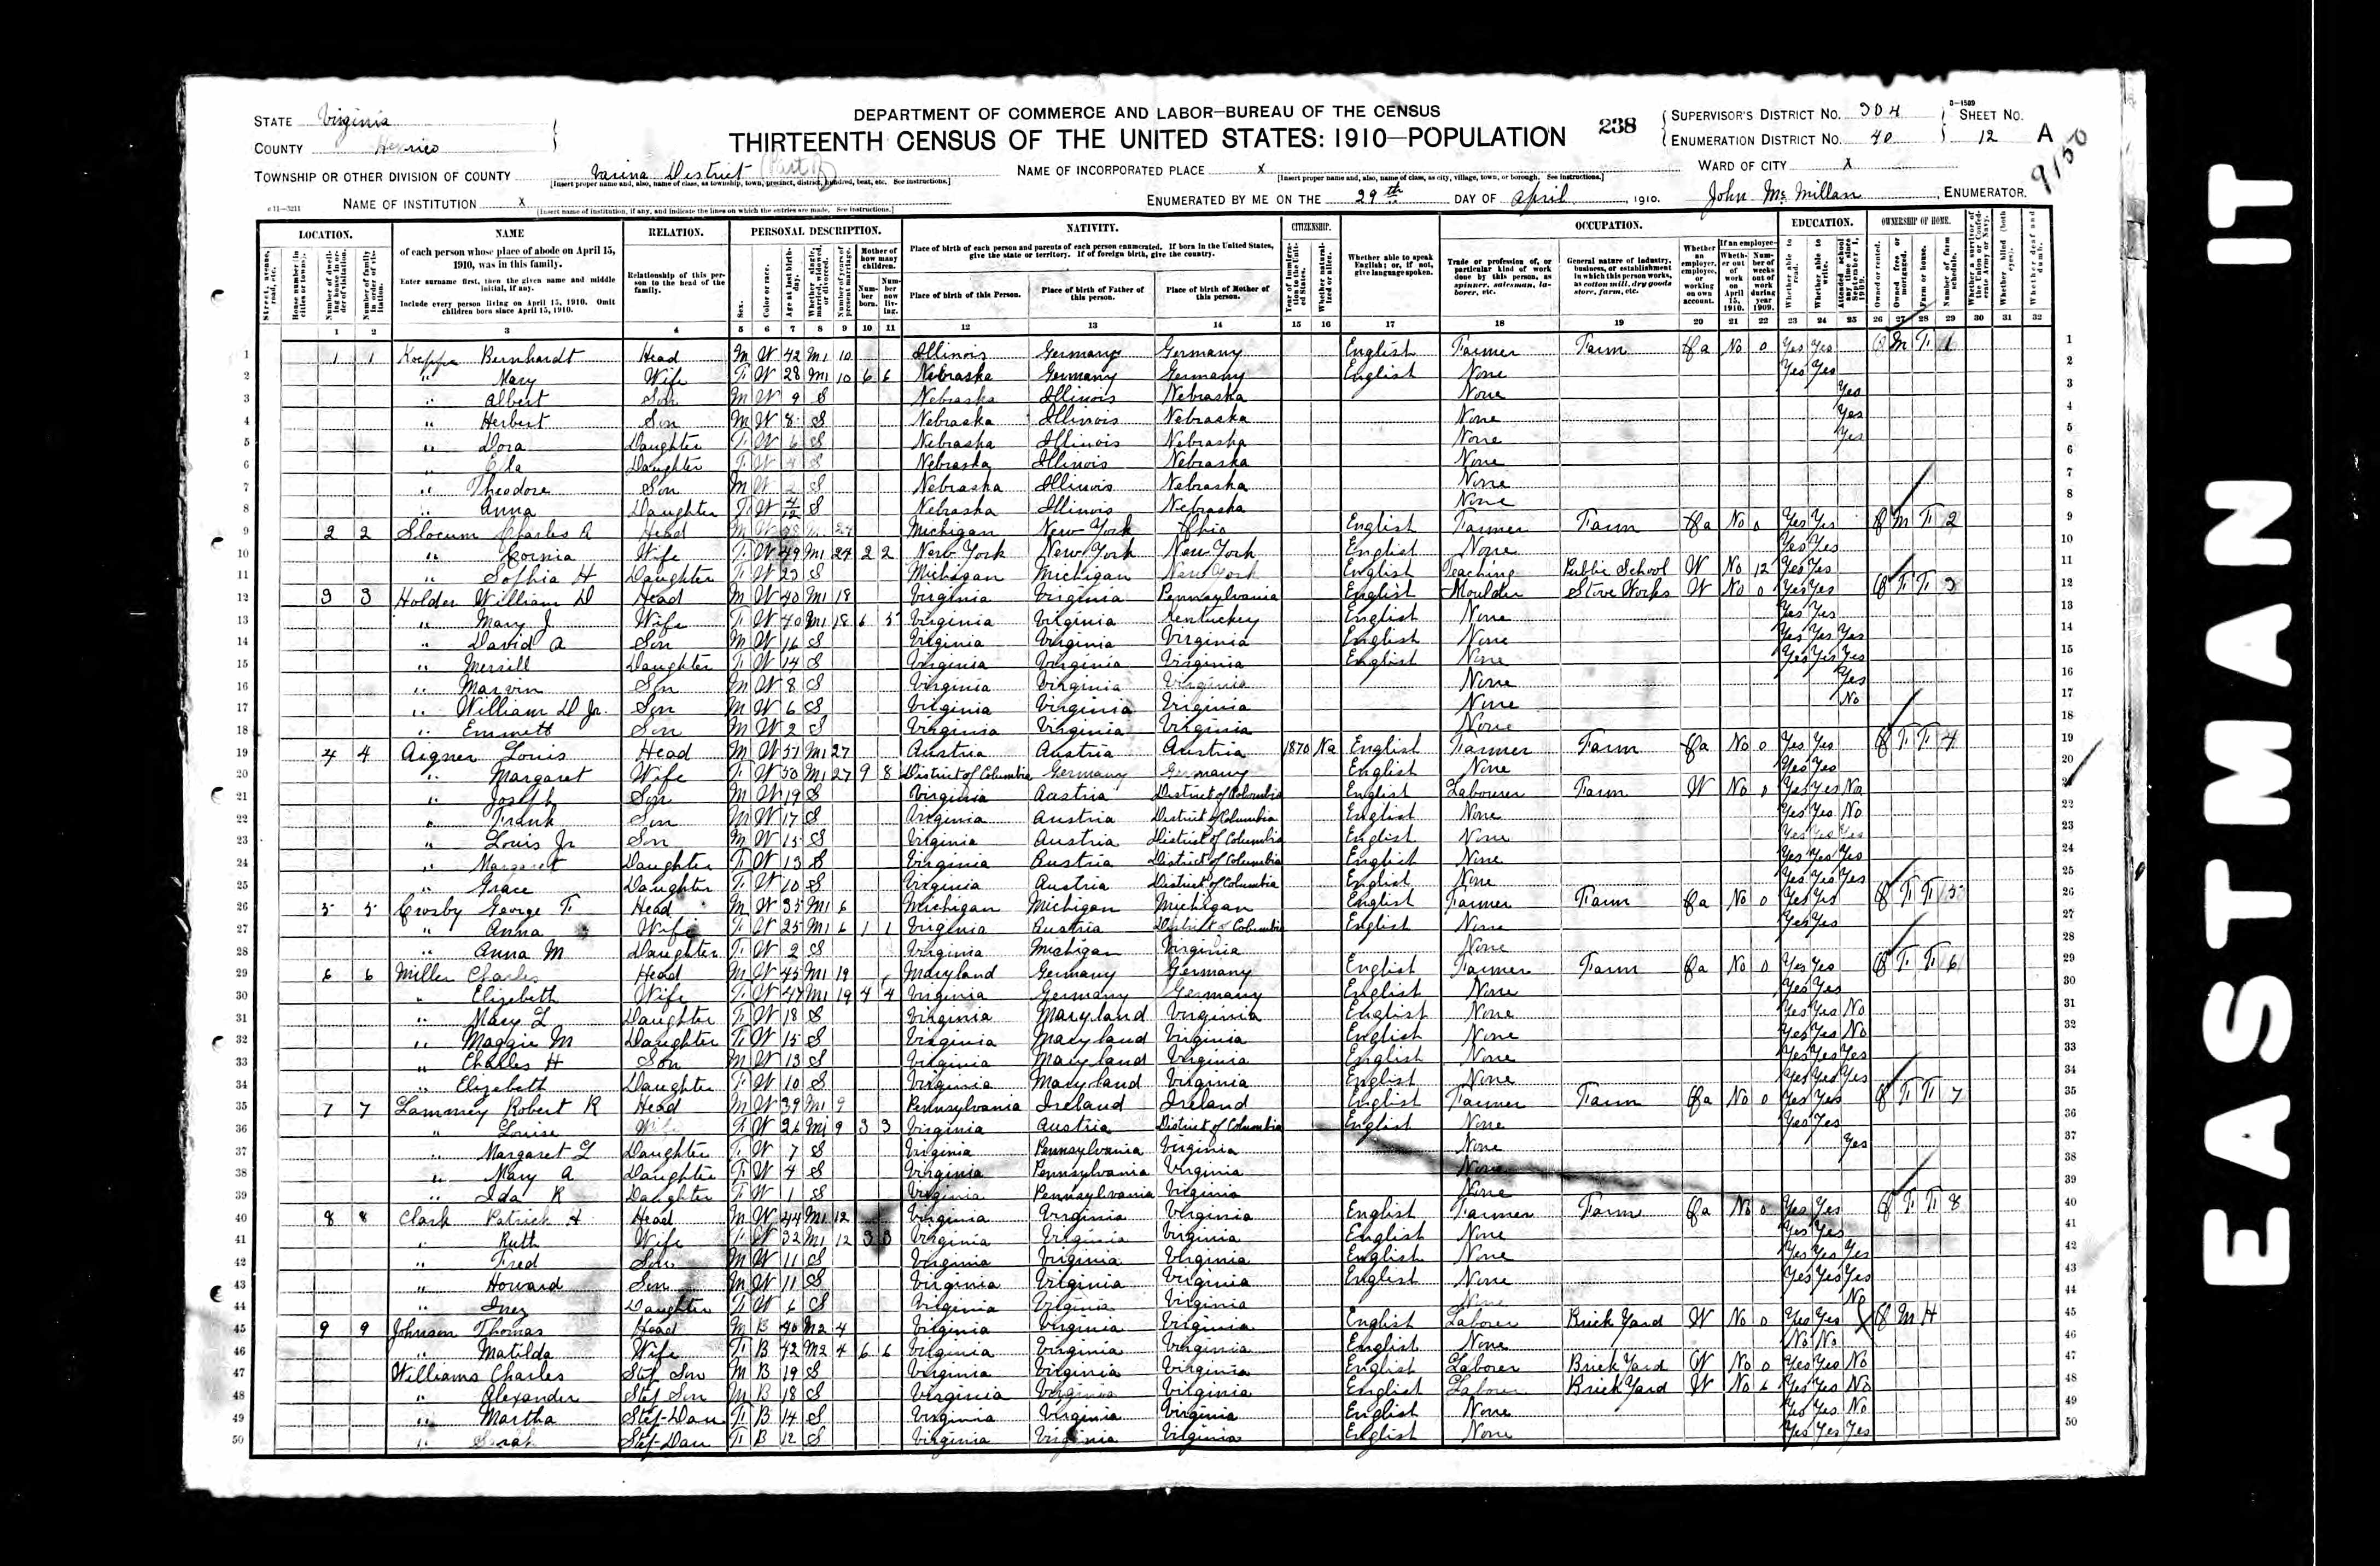 STATE Virginia
COUNTY Henrico
TOWNSHIP OR OTHER DIVISION OF COUNTY Varina District
[Insert proper name and, also, name of class, as township, town, precinct, district, hundred, beat, etc. See instructions.]
NAME OF INSTITUTION X
[Insert name of institution, if any, and indicate the lines on which the entries are made. See instructions.]
DEPARTMENT OF COMMERCE AND LABOR—BUREAU OF THE CENSUS
THIRTEENTH CENSUS OF THE UNITED STATES: 1910—POPULATION
238
NAME OF INCORPORATED PLACE X
[Insert proper name and, also, name of class, as city, village, town, or borough. See instructions.]
ENUMERATED BY ME ON THE 29th DAY OF April, 1910. John McMillan, ENUMERATOR.
SUPERVISOR'S DISTRICT No. 304
ENUMERATION DISTRICT No. 40
SHEET No. 12 A
WARD OF CITY X
9150
LOCATION. NAME RELATION. PERSONAL DESCRIPTION. NATIVITY. CITIZENSHIP. OCCUPATION. EDUCATION. OWNERSHIP OF HOME.
1 2 3 4 5 6 7 8 9 10 11 12 13 14 15 16 17 18 19 20 21 22 23 24 25 26 27 28 29 30 31 32
1 1 1 Bernhardt Head M W 42 M1 10 Illinois Germany Germany English Farmer Farm Oa No 0 Yes Yes O M F 1
2 " Mary Wife F W 28 M1 10 6 6 Nebraska Germany Germany English None Yes Yes
3 " Albert Son M W 9 S Nebraska Illinois Nebraska None Yes
4 " Herbert Son M W 8 S Nebraska Illinois Nebraska None Yes
5 " Dora Daughter F W 6 S Nebraska Illinois Nebraska None Yes
6 " Daughter F W 4 S Nebraska Illinois Nebraska None
7 " Theodore Son M W 2 S Nebraska Illinois Nebraska None
8 " Anna Daughter F W 4/12 S Nebraska Illinois Nebraska None
9 2 2 Slocum Charles A Head M W M1 24 Michigan New York Ohio English Farmer Farm Oa No 0 Yes Yes O M F 2
10 " Wife F W 49 M1 24 2 2 New York New York New York English None Yes Yes
11 " Sophia H Daughter F W 23 S Michigan Michigan New York English Teaching Public School W No 12 Yes Yes
12 3 3 Holder William D Head M W 40 M1 18 Virginia Virginia Pennsylvania English Moulder Stove Works W No 0 Yes Yes O F F 3
13 " Mary J Wife F W 40 M1 18 6 5 Virginia Virginia Kentucky English None Yes Yes
14 " David A Son M W 16 S Virginia Virginia Virginia English None Yes Yes Yes
15 " Merrill Daughter F W 14 S Virginia Virginia Virginia English None Yes Yes Yes
16 " Marvin Son M W 8 S Virginia Virginia Virginia None Yes
17 " William D Jr. Son M W 6 S Virginia Virginia Virginia None No
18 " Emmett Son M W 2 S Virginia Virginia Virginia None
19 4 4 Aigner Louis Head M W 51 M1 27 Austria Austria Austria 1870 Na English Farmer Farm Oa No 0 Yes Yes O F F 4
20 " Margaret Wife F W 50 M1 27 9 8 District of Columbia Germany Germany English None Yes Yes
21 " Joseph Son M W 19 S Virginia Austria District of Columbia English Labourer Farm W No 0 Yes Yes No
22 " Frank Son M W 17 S Virginia Austria District of Columbia English None Yes Yes No
23 " Louis Jr Son M W 15 S Virginia Austria District of Columbia English None Yes Yes Yes
24 " Margaret Daughter F W 13 S Virginia Austria District of Columbia English None Yes Yes Yes
25 " Grace Daughter F W 10 S Virginia Austria District of Columbia English None Yes Yes Yes
26 5 5 Crosby George F. Head M W 35 M1 6 Michigan Michigan Michigan English Farmer Farm Oa No 0 Yes Yes O F F 5
27 " Anna Wife F W 25 M1 6 1 1 Virginia Austria District of Columbia English None Yes Yes
28 " Anna M Daughter F W 2 S Virginia Michigan Virginia None
29 6 6 Miller Charles Head M W 45 M1 19 Maryland Germany Germany English Farmer Farm Oa No 0 Yes Yes O F F 6
30 " Elizebeth Wife F W 47 M1 19 4 4 Virginia Germany Germany English None Yes Yes
31 " Mary L Daughter F W 18 S Virginia Maryland Virginia English None Yes Yes No
32 " Maggie M Daughter F W 15 S Virginia Maryland Virginia English None Yes Yes No
33 " Charles H Son M W 13 S Virginia Maryland Virginia English None Yes Yes Yes
34 " Elizebeth Daughter F W 10 S Virginia Maryland Virginia English None Yes Yes Yes
35 7 7 Lammey Robert R Head M W 39 M1 9 Pennsylvania Ireland Ireland English Farmer Farm Oa No 0 Yes Yes O F F 7
36 " Louise Wife F W 26 M1 9 3 3 Virginia Austria District of Columbia English None Yes Yes
37 " Margaret L Daughter F W 7 S Virginia Pennsylvania Virginia None Yes
38 " Mary A Daughter F W 4 S Virginia Pennsylvania Virginia None
39 " Ida R Daughter F W 1 S Virginia Pennsylvania Virginia None
40 8 8 Clark Patrick H Head M W 44 M1 12 Virginia Virginia Virginia English Farmer Farm Oa No 0 Yes Yes O F F 8
41 " Ruth Wife F W 32 M1 12 3 3 Virginia Virginia Virginia English None Yes Yes
42 " Fred Son M W 11 S Virginia Virginia Virginia English None Yes Yes Yes
43 " Howard Son M W 11 S Virginia Virginia Virginia English None Yes Yes Yes
44 " Inez Daughter F W 6 S Virginia Virginia Virginia None No
45 9 9 Johnson Thomas Head M B 40 M2 4 Virginia Virginia Virginia English Laborer Brick Yard W No 0 Yes Yes O M H
46 " Matilda Wife F B 42 M2 4 6 6 Virginia Virginia Virginia English None No No
47 Williams Charles Step Son M B 19 S Virginia Virginia Virginia English Laborer Brick Yard W No 0 Yes Yes No
48 " Alexander Step Son M B 18 S Virginia Virginia Virginia English Laborer Brick Yard W No 6 Yes Yes No
49 " Martha Step-Dau F B 14 S Virginia Virginia Virginia English None Yes Yes No
50 " Sarah Step-Dau F B 12 S Virginia Virginia Virginia English None Yes Yes Yes
EASTMAN IT